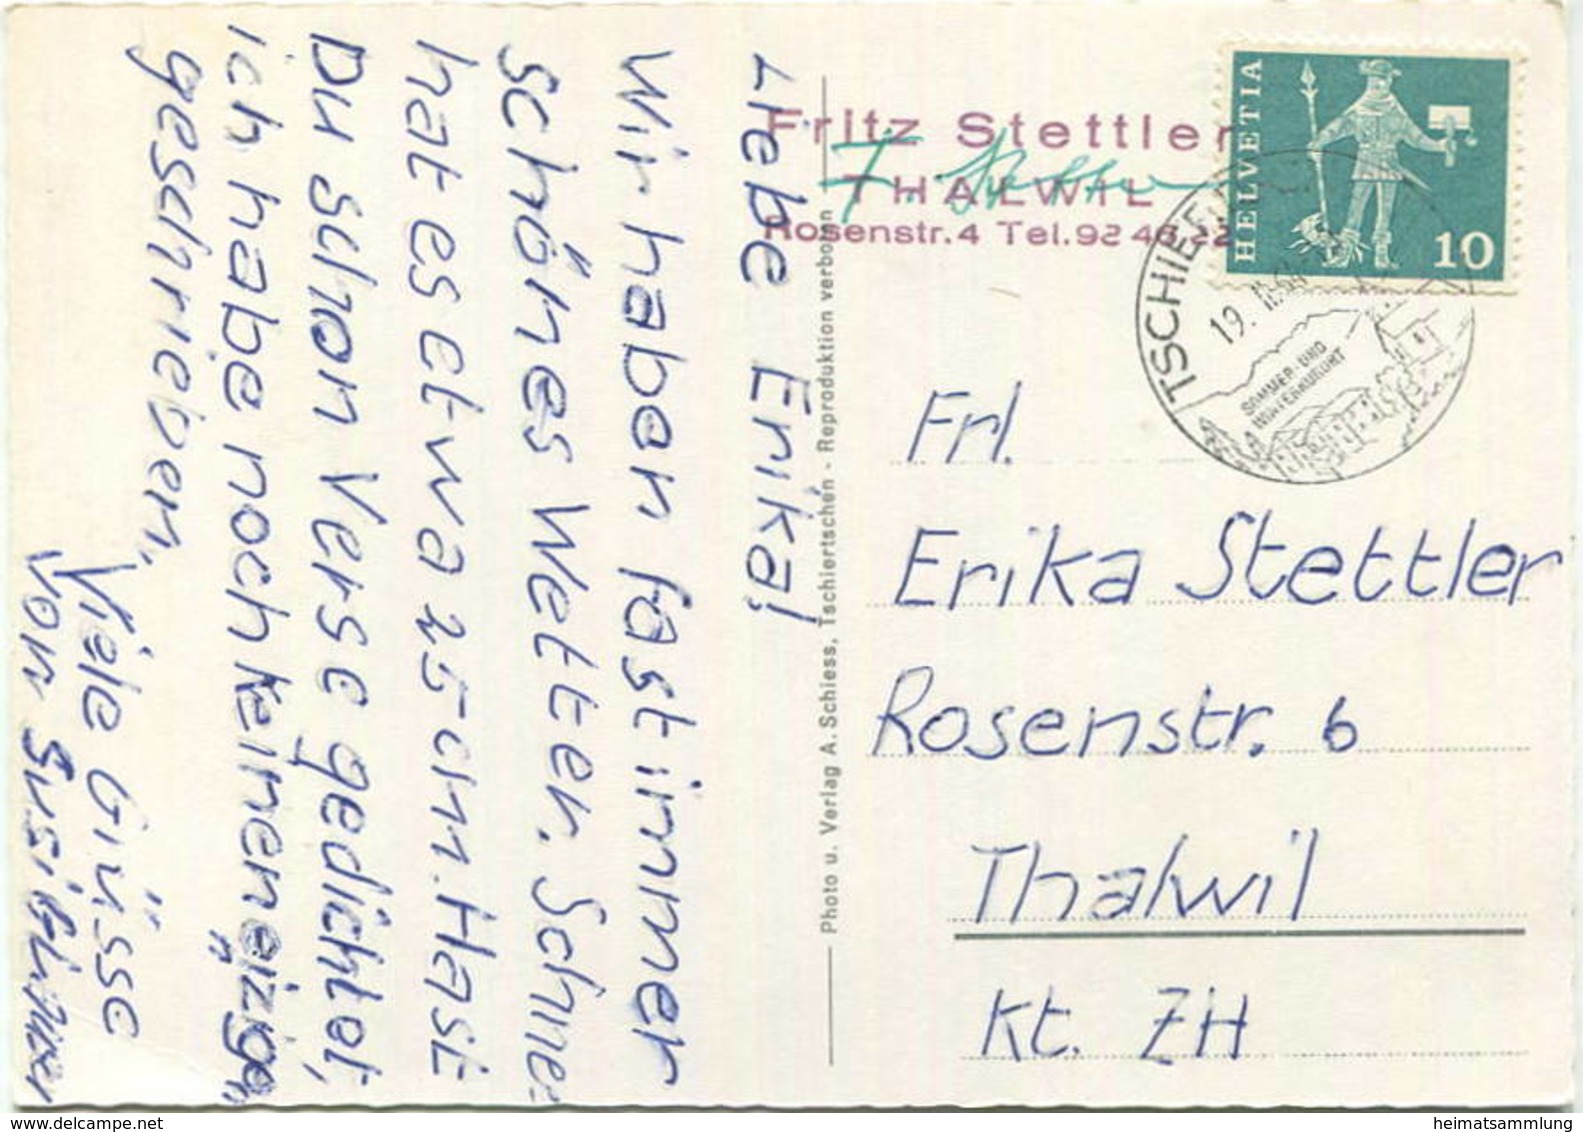 Liebe Erika!
Wir haben fast immer
schönes Wetter. Schnee
hat es etwa 25 cm. Hast
Du schon Verse gedichtet,
ich habe noch keinen „eizige"
geschrieben.
Viele Grüsse
von Susi
Photo u. Verlag A. Schiess, Tschiertschen - Reproduktion verboten
Fritz Stettler
THALWIL
Rosenstr. 4 Tel. 92 46 22
HELVETIA
10
TSCHIER
19.
SOMMER- UND
WINTERKURORT
Frl.
Erika Stettler
Rosenstr. 6
Thalwil
Kt. ZH
delcampe.net
heimatsammlung